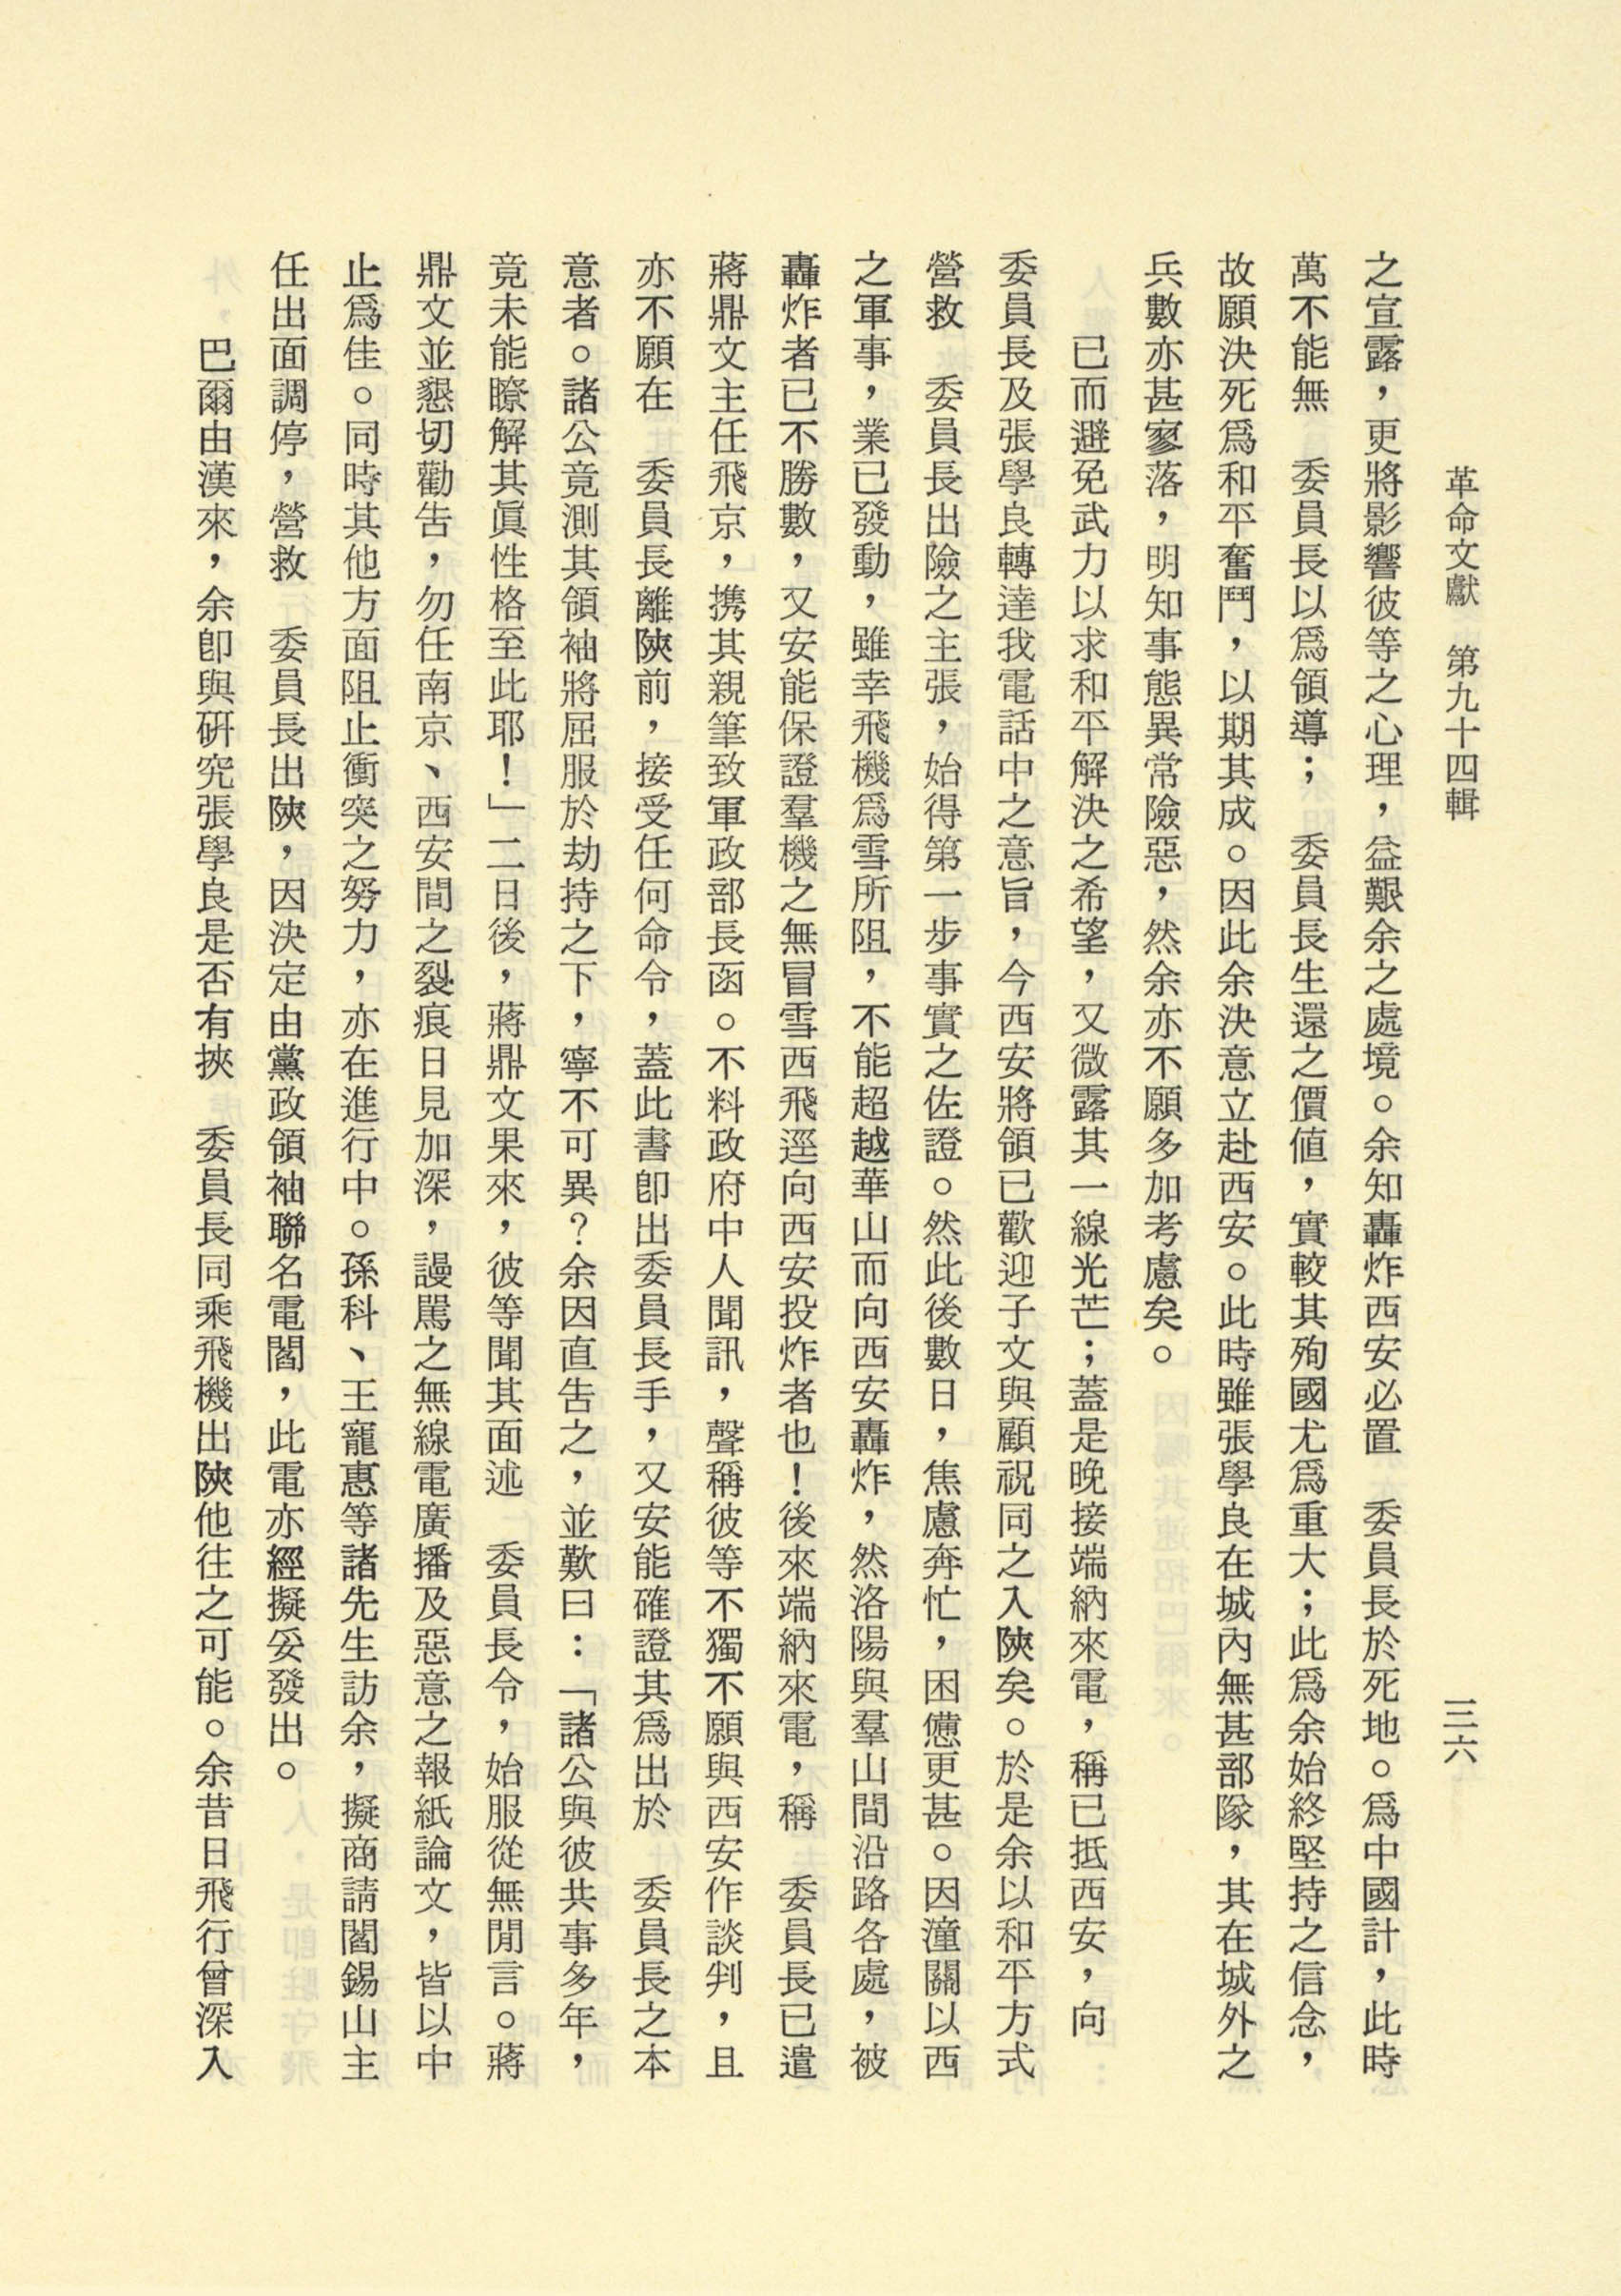 革命文獻　第九十四輯
三六
之宣露，更將影響彼等之心理，益艱余之處境。余知轟炸西安必置　委員長於死地。爲中國計，此時
萬不能無　委員長以爲領導；　委員長生還之價值，實較其殉國尤爲重大；此爲余始終堅持之信念，
故願決死爲和平奮鬥，以期其成。因此余決意立赴西安。此時雖張學良在城內無甚部隊，其在城外之
兵數亦甚寥落，明知事態異常險惡，然余亦不願多加考慮矣。
已而避免武力以求和平解決之希望，又微露其一線光芒；蓋是晚接端納來電，稱已抵西安，向
委員長及張學良轉達我電話中之意旨，今西安將領已歡迎子文與顧祝同之入陝矣。於是余以和平方式
營救　委員長出險之主張，始得第一步事實之佐證。然此後數日，焦慮奔忙，困憊更甚。因潼關以西
之軍事，業已發動，雖幸飛機爲雪所阻，不能超越華山而向西安轟炸，然洛陽與羣山間沿路各處，被
轟炸者已不勝數，又安能保證羣機之無冒雪西飛逕向西安投炸者也！後來端納來電，稱　委員長已遣
蔣鼎文主任飛京，携其親筆致軍政部長函。不料政府中人聞訊，聲稱彼等不獨不願與西安作談判，且
亦不願在　委員長離陝前，接受任何命令，蓋此書卽出委員長手，又安能確證其爲出於　委員長之本
意者。諸公竟測其領袖將屈服於劫持之下，寧不可異？余因直告之，並歎曰：「諸公與彼共事多年，
竟未能瞭解其眞性格至此耶！」二日後，蔣鼎文果來，彼等聞其面述　委員長令，始服從無閒言。蔣
鼎文並懇切勸告，勿任南京、西安間之裂痕日見加深，謾駡之無線電廣播及惡意之報紙論文，皆以中
止爲佳。同時其他方面阻止衝突之努力，亦在進行中。孫科、王寵惠等諸先生訪余，擬商請閻錫山主
任出面調停，營救　委員長出陝，因決定由黨政領袖聯名電閻，此電亦經擬妥發出。
巴爾由漢來，余卽與硏究張學良是否有挾　委員長同乘飛機出陝他往之可能。余昔日飛行曾深入